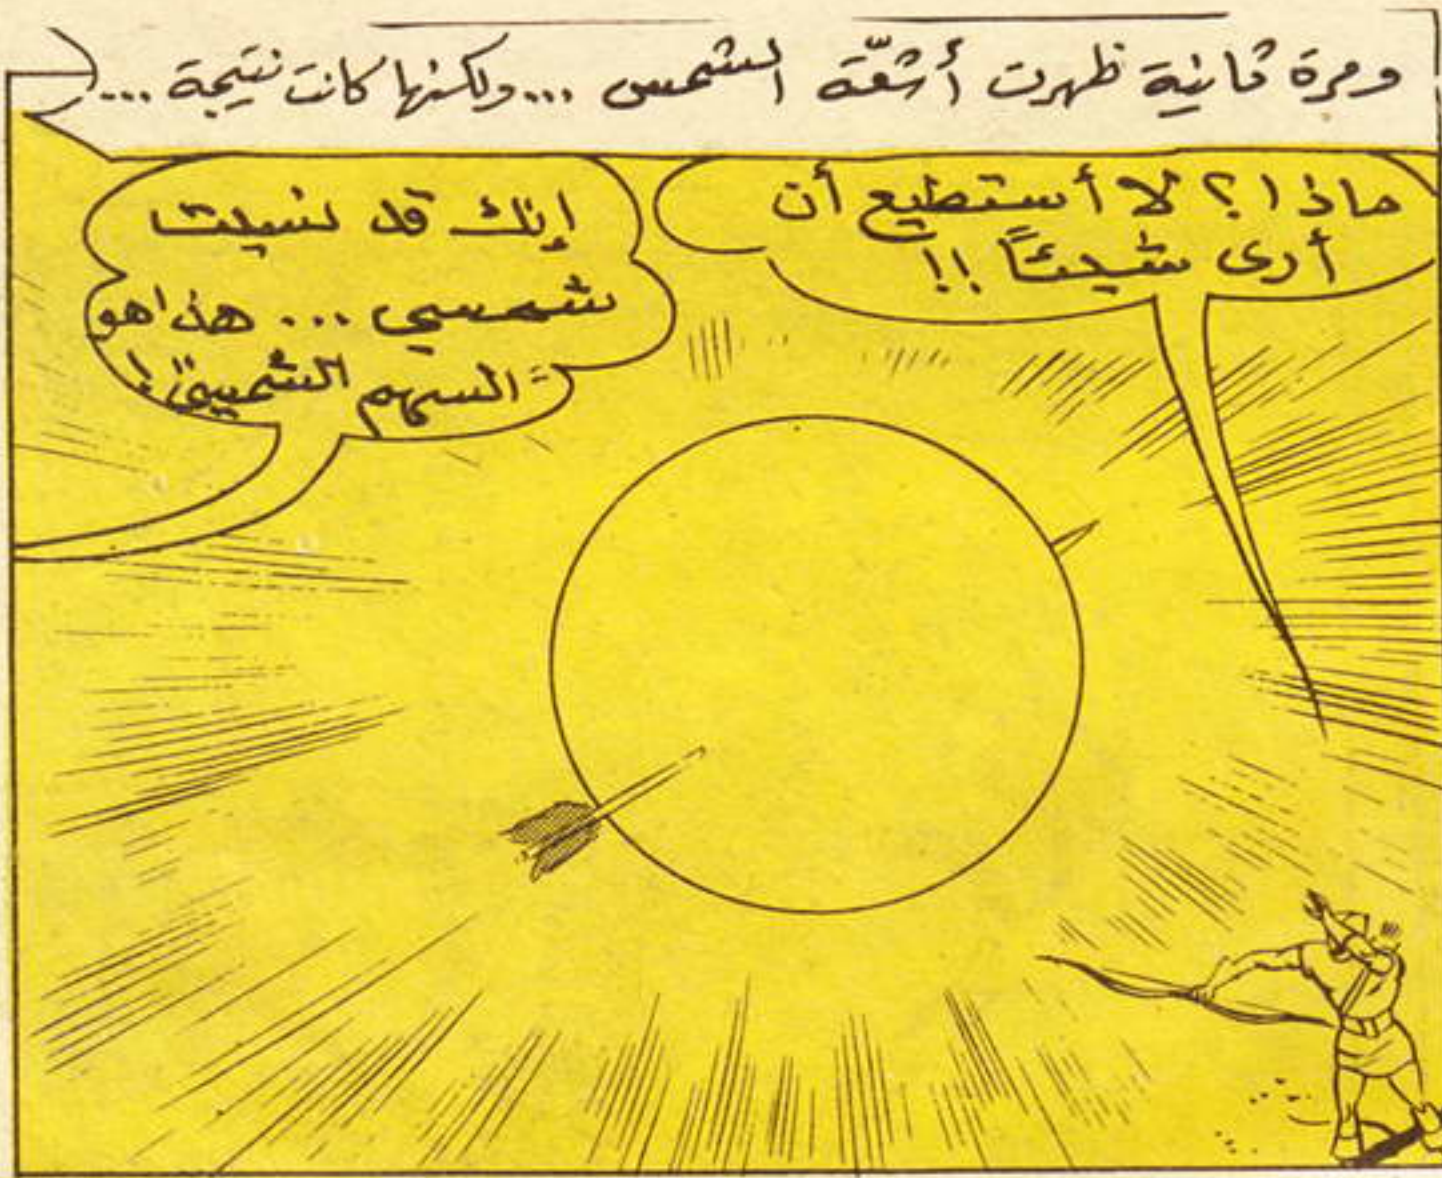 ومرة ثانية ظهرت أشعّة الشمس ... ولكنها كانت نتيجة ...
ماذا؟ لا أستطيع أن
أرى شيئاً !!
إنك قد نسيت
شمسي ... هذا هو
"السهم الشمسي"!